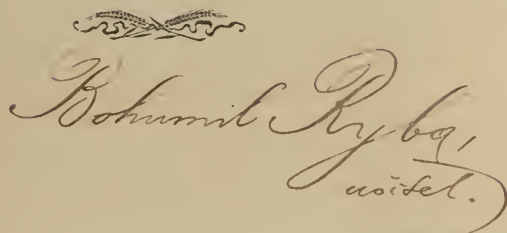 Bohumil Ryba,
učitel.